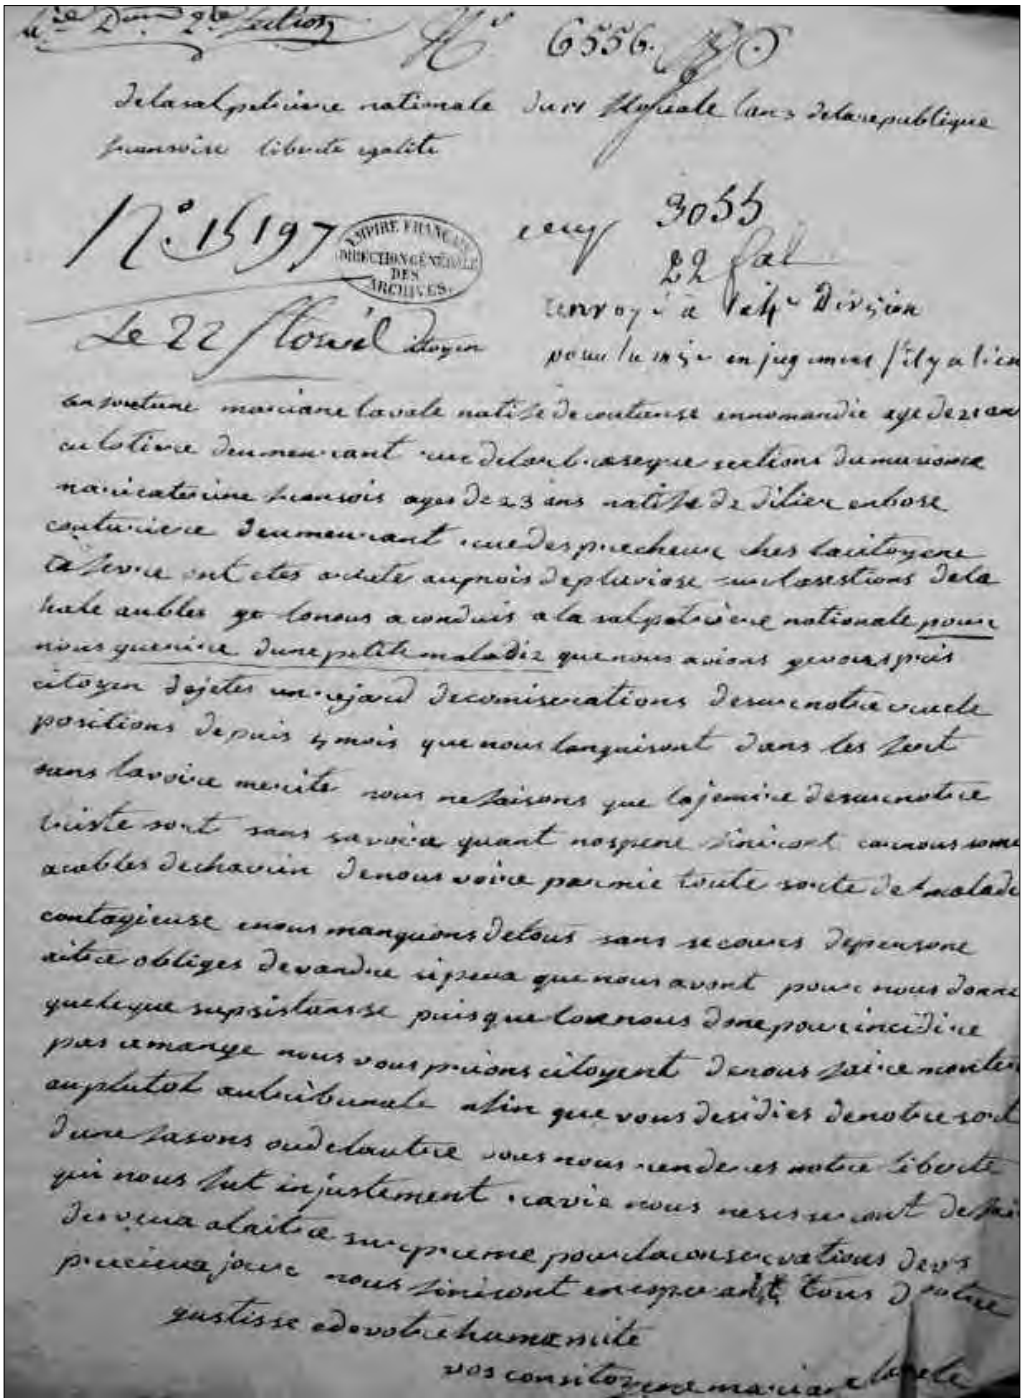 2e section
N° 6556.
de la salpetriere nationale du 21 floreale lans de la republique
fransoise liberte egalite
N° 15197
EMPIRE FRANÇAIS
DIRECTION GÉNÉRALE
DES
ARCHIVES.
3055
22 flal
envoyé à la 4e Division
pour la mise en jugement s'il y a lieu
Le 22 floréal
citoyen
marciane lavale natife de coutanse ennomandie age de 21 an
deumeurant rue de larbraseque sections du museome
maricaterine fransois agee de 23 ans natife de
couturiere deumeurant rue des precheur ches la citoyene
ont etes arate aumois de pluviose sur la sestions de la
hale aubles lonous a conduis a la salpetriere nationale pour
nous guerire dune petite maladie que nous avions
citoyen dejeter un rejard decomiserations desur notre cruele
positions depuis 4 mois que nous languisont dans les fert
sans lavoire merite nous nefaisons que la jemire desur notre
triste sort sans savoire quant nospene finiront car nous some
acables dechagrin denous voire parmie toute sorte de maladi
contagieuse enous manquons de tous sans secours depersone
aitre obliges devandre sipeux que nous avont pour nous donne
quelque supsistansse puisque lon nous done pour incidire
pas amange nous vous prions citoyent denous faire monter
auplutot autribunale afin que vous desidies denotre sort
dune fasons oudelautre vous nous renderes notre liberte
qui nous fut injustement ravie nous neseseront de fai
des veux alaitre supreme pour la conservations de vos
precieux jour nous finiront enesperant tous de votre
gustisse edevotre humanite
vos consitoyene mariane lavale